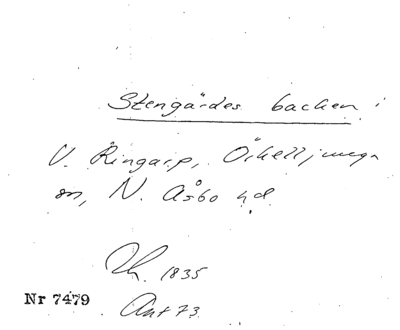 Stengärdes backen i
V. Ringarp, Örkelljunga
sn, N. Åsbo hd.
1835
Nr 7479
Ant 73